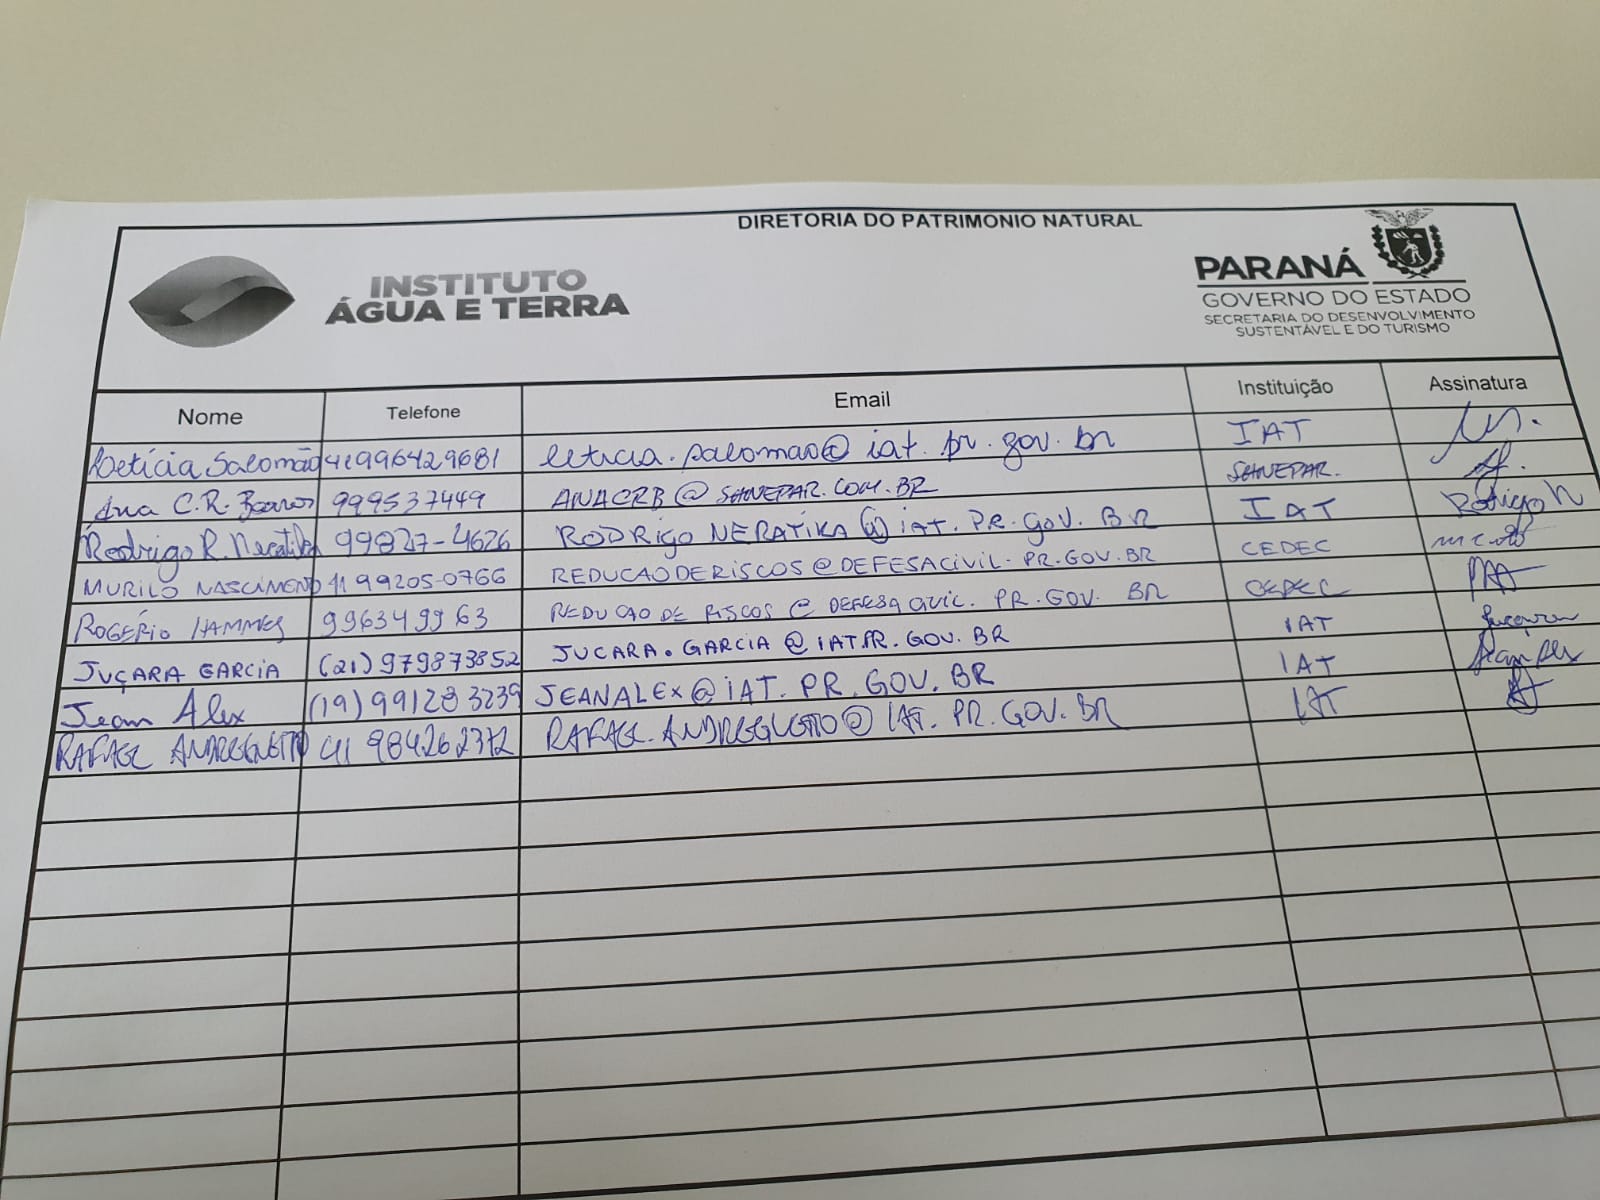 DIRETORIA DO PATRIMONIO NATURAL
INSTITUTO
ÁGUA E TERRA
PARANÁ
GOVERNO DO ESTADO
SECRETARIA DO DESENVOLVIMENTO
SUSTENTÁVEL E DO TURISMO
Nome Telefone Email Instituição Assinatura
Letícia Salomão 41996429681 leticia.salomao@iat.pr.gov.br IAT
Ana C.R. 999537449 ANACRB@SANEPAR.COM.BR SANEPAR.
Rodrigo R. 99827-4626 RODRIGO NERATIKA@iAT.PR.GOV.BR IAT Rodrigo N
MURILO NASCIMENTO 41 99205-0766 REDUCAODERISCOS@DEFESACIVIL.PR.GOV.BR CEDEC
ROGÉRIO HAMMES 996349963 REDUCAO DE RISCOS@DEFESACIVIL.PR.GOV.BR CEDEC
JUÇARA GARCIA (21)979873852 JUCARA.GARCIA@IAT.PR.GOV.BR IAT
Jean Alex (19)991283239 JEANALEX@IAT.PR.GOV.BR IAT Jean Alex
RAFAEL ANDREGUETTO 41 984262372 RAFAEL.ANDREGUETTO@IAT.PR.GOV.BR IAT